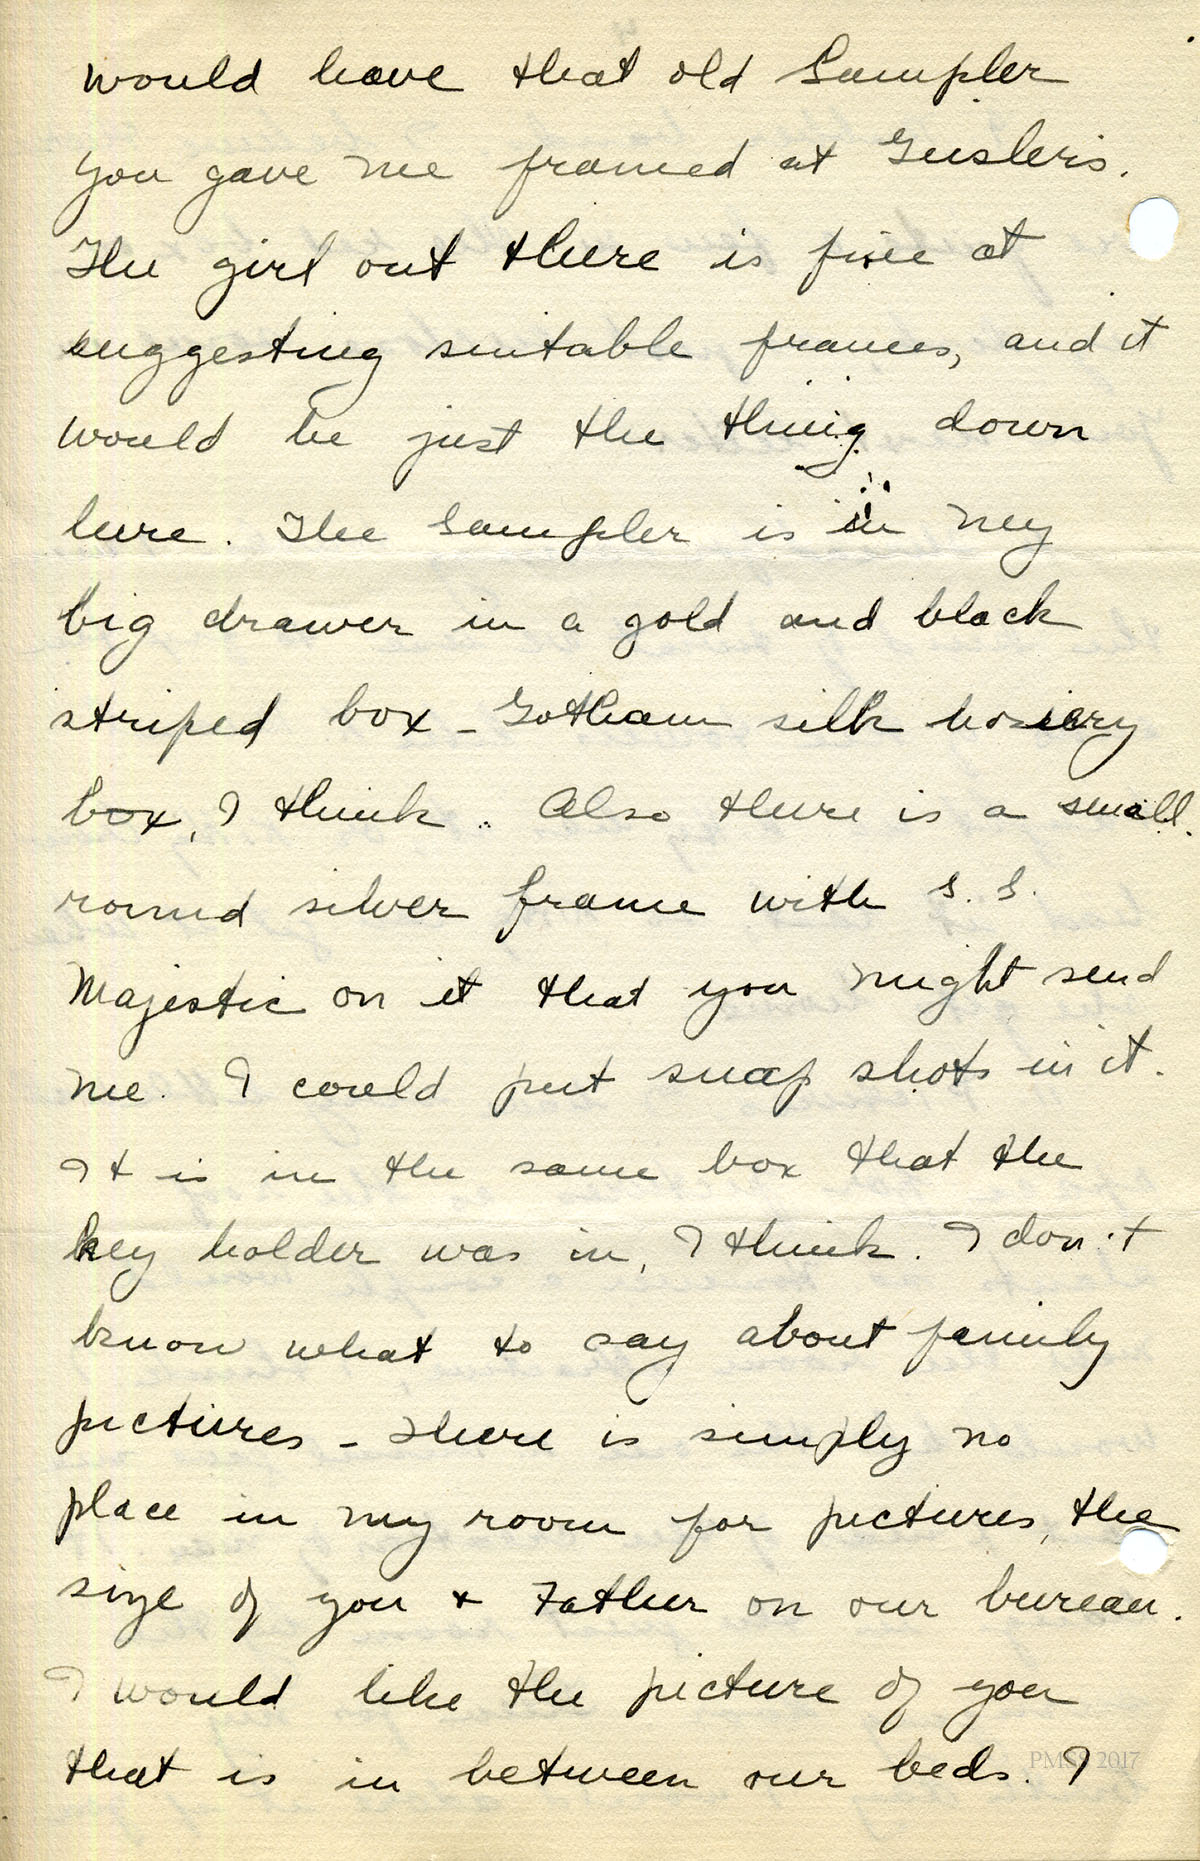 would have that old Sampler
you gave me framed at Geisler's.
The girl out there is fine at
suggesting suitable frames, and it
would be just the thing down
here. The Sampler is in my
big drawer in a gold and black
striped box - Gotham silk hosiery
box, I think. Also there is a small
round silver frame with S.S.
Majestic on it that you might send
me. I could put snap shots in it.
It is in the same box that the
key holder was in, I think. I don't
know what to say about family
pictures - There is simply no
place in my room for pictures, the
size of you + Father on our bureau.
I would like the picture of you
that is in between our beds. I
PMSS 2017